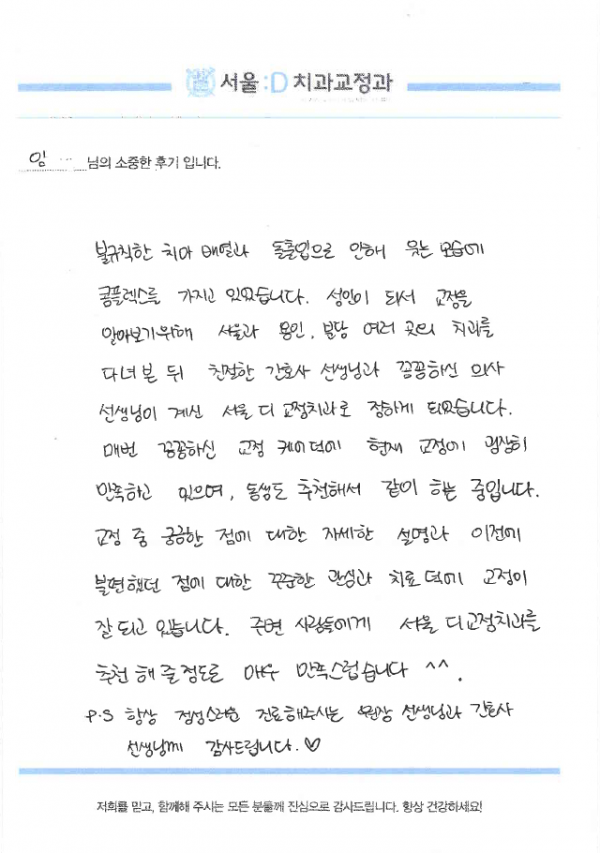 서울:D 치과교정과
임 님의 소중한 후기 입니다.
불규칙한 치아 배열과 돌출입으로 인해 웃는 모습에
콤플렉스를 가지고 있었습니다. 성인이 되서 교정을
알아보기위해 서울과 용인, 분당 여러 곳의 치과를
다녀 본 뒤 친절한 간호사 선생님과 꼼꼼하신 의사
선생님이 계신 서울 디 교정치과로 정하게 되었습니다.
매번 꼼꼼하신 교정 케어덕에 현재 교정에 굉장히
만족하고 있으며, 동생도 추천해서 같이 하는 중입니다.
교정 중 궁금한 점에 대한 자세한 설명과 이전에
불편했던 점에 대한 꾸준한 관심과 치료 덕에 교정이
잘 되고 있습니다. 주변 사람들에게 서울 디교정치과를
추천 해 줄 정도로 매우 만족스럽습니다 ^^.
P.S 항상 정성스러운 진료해주시는 원장 선생님과 간호사
선생님께 감사드립니다. ♡
저희를 믿고, 함께해 주시는 모든 분들께 진심으로 감사드립니다. 항상 건강하세요!